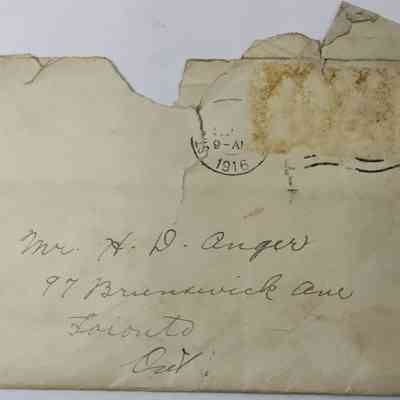 9-AM
1916
Mr. H. D. Anger
97 Brunswick Ave
Toronto
Ont.